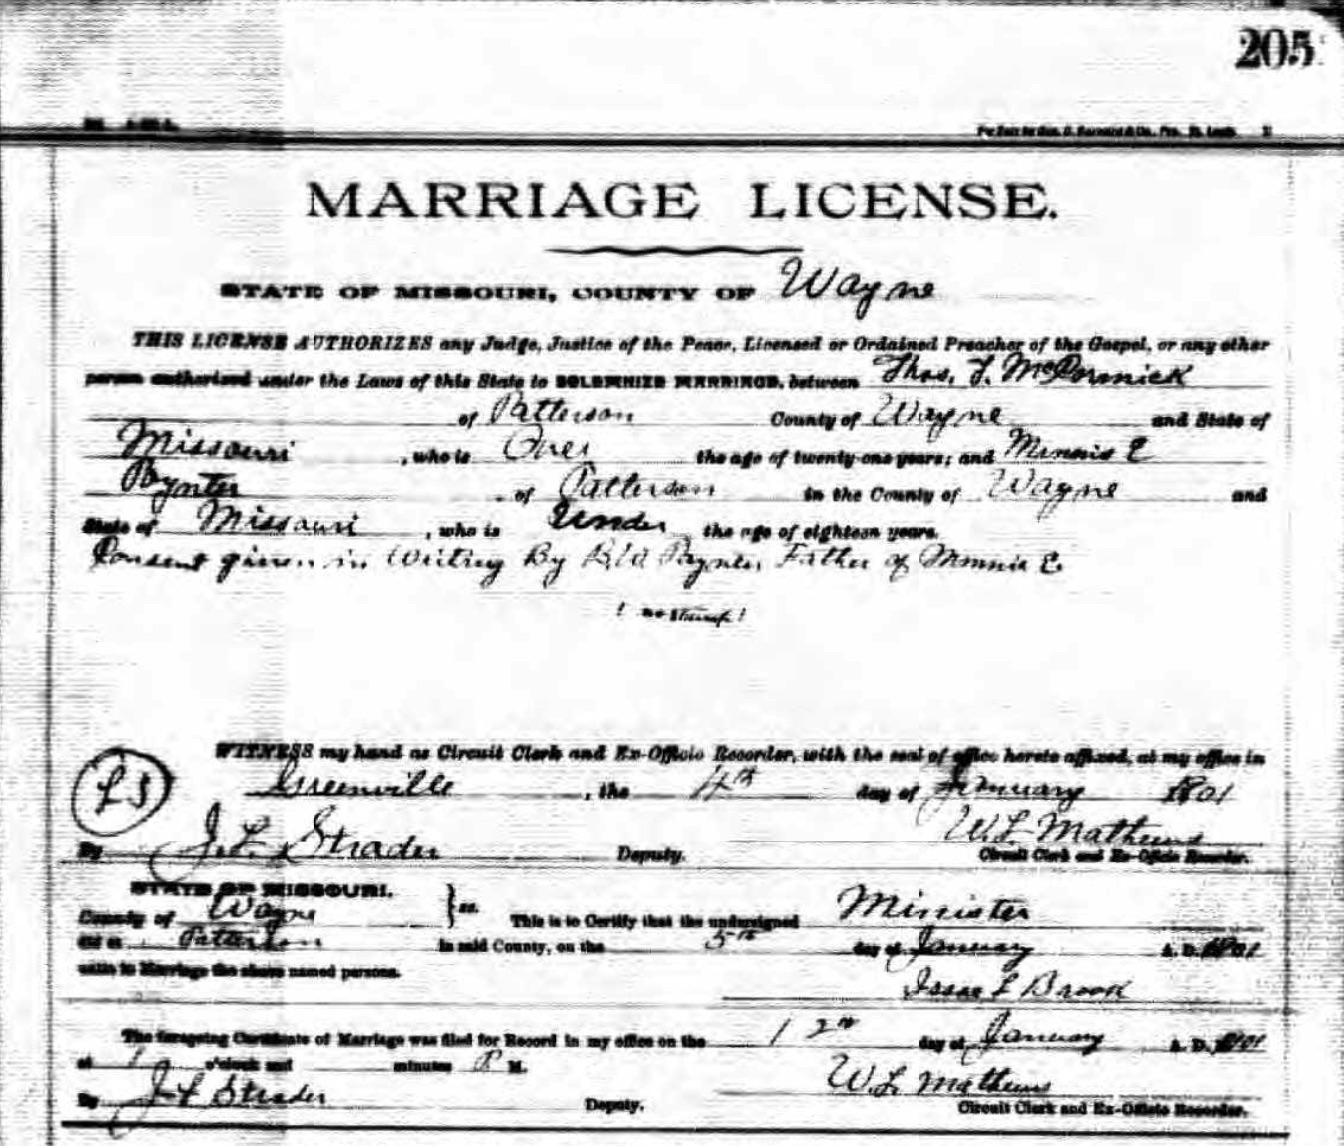 205
MARRIAGE LICENSE.
STATE OF MISSOURI, COUNTY OF Wayne
THIS LICENSE AUTHORIZES any Judge, Justice of the Peace, Licensed or Ordained Preacher of the Gospel, or any other
person authorized under the Laws of this State to SOLEMNIZE MARRIAGE, between Thos. F. McCormick
of Patterson County of Wayne and State of
Missouri, who is Over the age of twenty-one years; and Minnie E
Poynter of Patterson in the County of Wayne and
State of Missouri, who is Under the age of eighteen years.
Consent given in Writing By Poynter, Father of Minnie E.
WITNESS my hand as Circuit Clerk and Ex-Officio Recorder, with the seal of office hereto affixed, at my office in
LS
Greenville, the 4th day of January 1901
W. L. Mathews
By J. L. Strader Deputy. Circuit Clerk and Ex-Officio Recorder.
STATE OF MISSOURI.
County of Wayne } ss. This is to Certify that the undersigned Minister
did at Patterson in said County, on the 5th day of January A. D. 1901
unite in Marriage the above named persons.
Isaac L Brook
The foregoing Certificate of Marriage was filed for Record in my office on the 12th day of January A. D. 1901
at 1 o'clock and minutes P M.
W. L. Mathews
By J L Strader Deputy. Circuit Clerk and Ex-Officio Recorder.